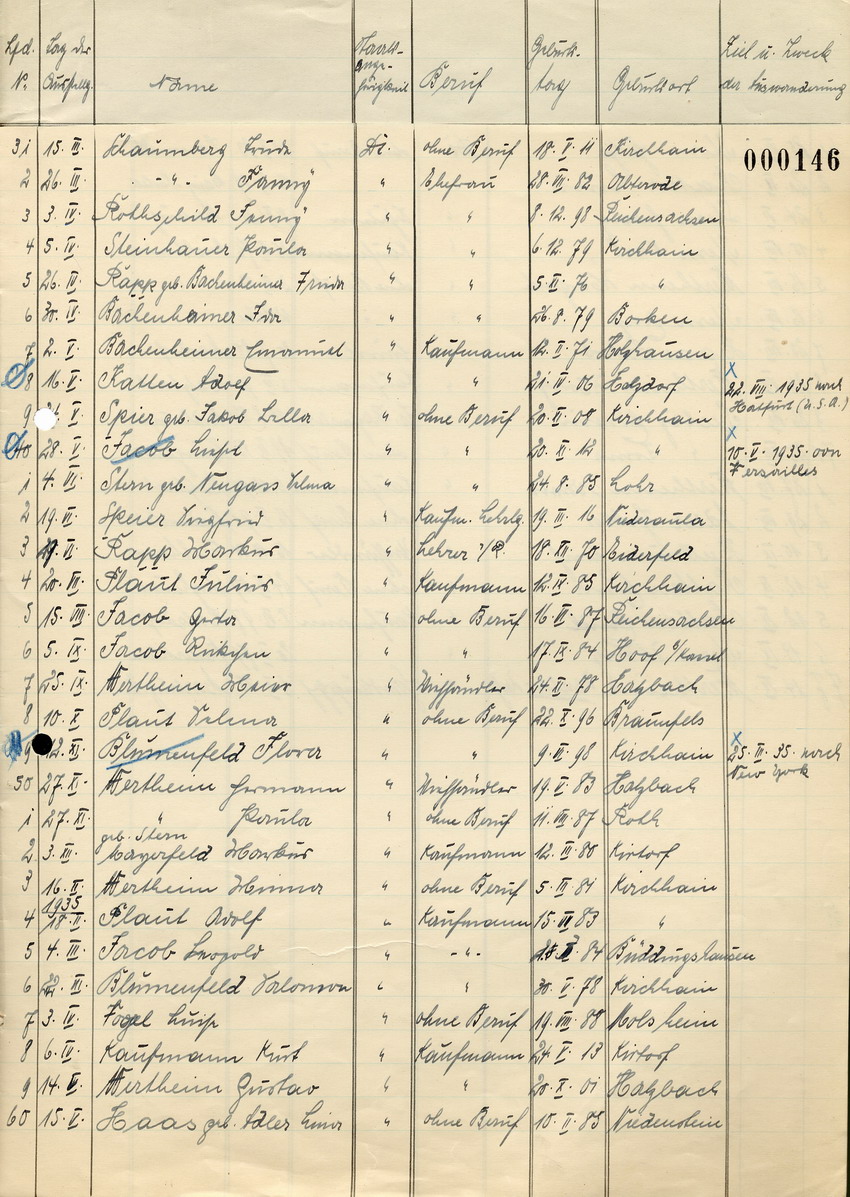 Lfd. Nr. Tag der Ausstellg. Name Staats-ange-hörigkeit Beruf Geburts-tag Geburtsort Ziel u. Zweck der Auswanderung
000146
31 15. III. Schaumberg Trude Dt. ohne Beruf 18. V. 11 Kirchhain
2 26. III. -"- Fanny " Ehefrau 28. III. 82 Abterode
3 3. IV. Rothschild Jenny " " 8. 12. 98 Reichensachsen
4 5. IV. Steinhauer Paula " " 6. 12. 79 Kirchhain
5 26. IV. Rapp geb. Bachenheimer Frieda " " 5. XI. 76 "
6 30. IV. Bachenheimer Ida " " 26. 8. 79 Borken
7 2. V. Bachenheimer Emanuel " Kaufmann 12. V. 71 Holzhausen
8 16. V. Katten Adolf " " 21. IV. 06 Holzdorf x 22. VIII. 1935 nach Hatfurt (U.S.A.)
9 V. Spier geb. Jakob Bella " ohne Beruf 20. II. 08 Kirchhain
40 28. V. Jacob Liesel " " 20. XI. 12 " x 10. V. 1935 von Versailles
1 4. VI. Stern geb. Neugass Selma " " 24. 8. 85 Lohr
2 19. VI. Speier Siegfried " Kaufm. Lehrlg. 19. III. 16 Niederaula
3 19. VI. Rapp Markus " Lehrer i/R. 18. XII. 70 Eiderfeld
4 20. VII. Plaut Julius " Kaufmann 12. IX. 85 Kirchhain
5 15. VIII. Jacob Gerta " ohne Beruf 16. VI. 87 Reichensachsen
6 5. IX. Jacob Rickchen " " 17. IX. 84 Hoof b/Kassel
7 25. IX. Wertheim Meier " Viehhändler 24. II. 78 Hatzbach
8 10. X. Plaut Selma " ohne Beruf 22. X. 96 Braunfels
9 12. XI. Blumenfeld Flora " " 9. VI. 98 Kirchhain x 25. III. 35. nach New York
50 27. XI. Wertheim Hermann " Viehhändler 19. V. 83 Hatzbach
1 27. XI. " Paula geb. Stern " ohne Beruf 11. VIII. 87 Roth
2 3. XII. Mayerfeld Markus " Kaufmann 12. III. 80 Kirtorf
3 16. II. 1935 Wertheim Minna " ohne Beruf 5. III. 81 Kirchhain
4 18. II. Plaut Adolf " Kaufmann 15. VII 83 "
5 4. III. Jacob Leopold " -"- 84 Büddingshausen
6 22. III. Blumenfeld Salomon " " 30. V. 78 Kirchhain
7 3. IV. Vogel Luise " ohne Beruf 19. VIII. 88 Molsheim
8 6. IV. Kaufmann Kurt " Kaufmann 24. V. 13 Kirtorf
9 14. V. Wertheim Gustav " " 20. X. 01 Hatzbach
60 15. V. Haas geb. Adler Lina " ohne Beruf 10. II. 85 Niedenstein